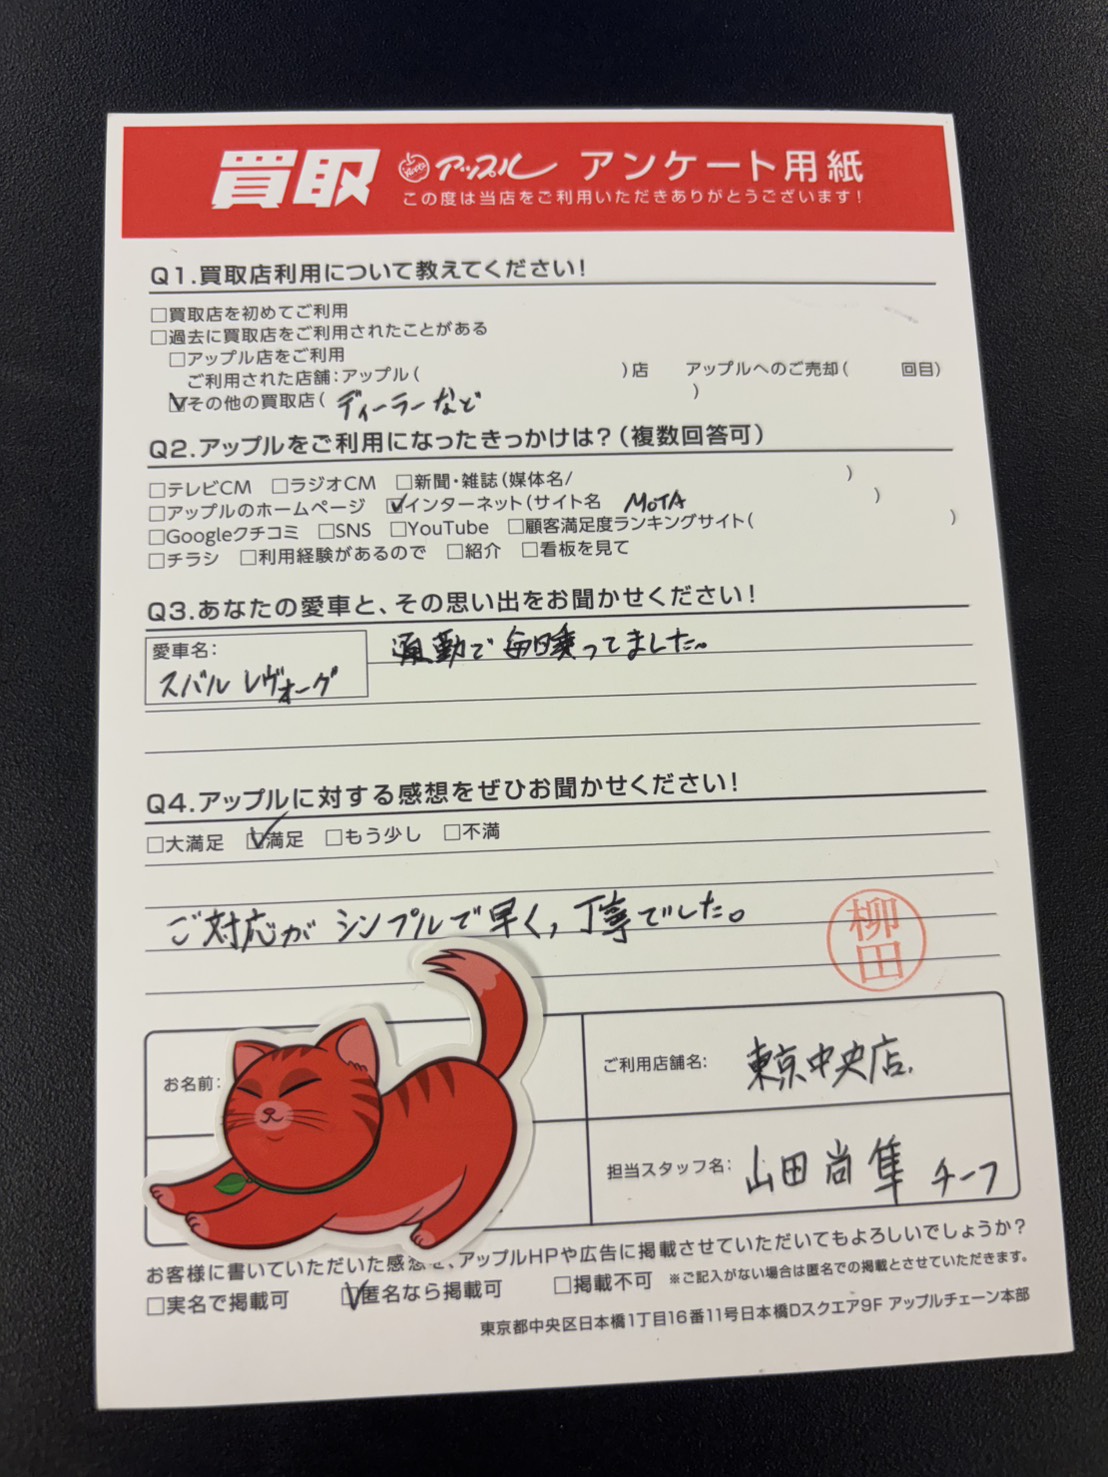 買取 アップル アンケート用紙
この度は当店をご利用いただきありがとうございます!
Q1.買取店利用について教えてください!
□買取店を初めてご利用
□過去に買取店をご利用されたことがある
□アップル店をご利用
ご利用された店舗:アップル( )店 アップルへのご売却( 回目)
☑その他の買取店( ディーラーなど )
Q2.アップルをご利用になったきっかけは?(複数回答可)
□テレビCM □ラジオCM □新聞・雑誌(媒体名/ )
□アップルのホームページ ☑インターネット(サイト名 MOTA )
□Googleクチコミ □SNS □YouTube □顧客満足度ランキングサイト( )
□チラシ □利用経験があるので □紹介 □看板を見て
Q3.あなたの愛車と、その思い出をお聞かせください!
愛車名:
スバル レヴォーグ
通勤で毎日乗ってました。
Q4.アップルに対する感想をぜひお聞かせください!
□大満足 ☑満足 □もう少し □不満
ご対応がシンプルで早く,丁寧でした。
柳田
お名前:
ご利用店舗名: 東京中央店.
担当スタッフ名: 山田尚隼 チーフ
お客様に書いていただいた感想を、アップルHPや広告に掲載させていただいてもよろしいでしょうか?
□実名で掲載可 ☑匿名なら掲載可 □掲載不可 ※ご記入がない場合は匿名での掲載とさせていただきます。
東京都中央区日本橋1丁目16番11号日本橋Dスクエア9F アップルチェーン本部